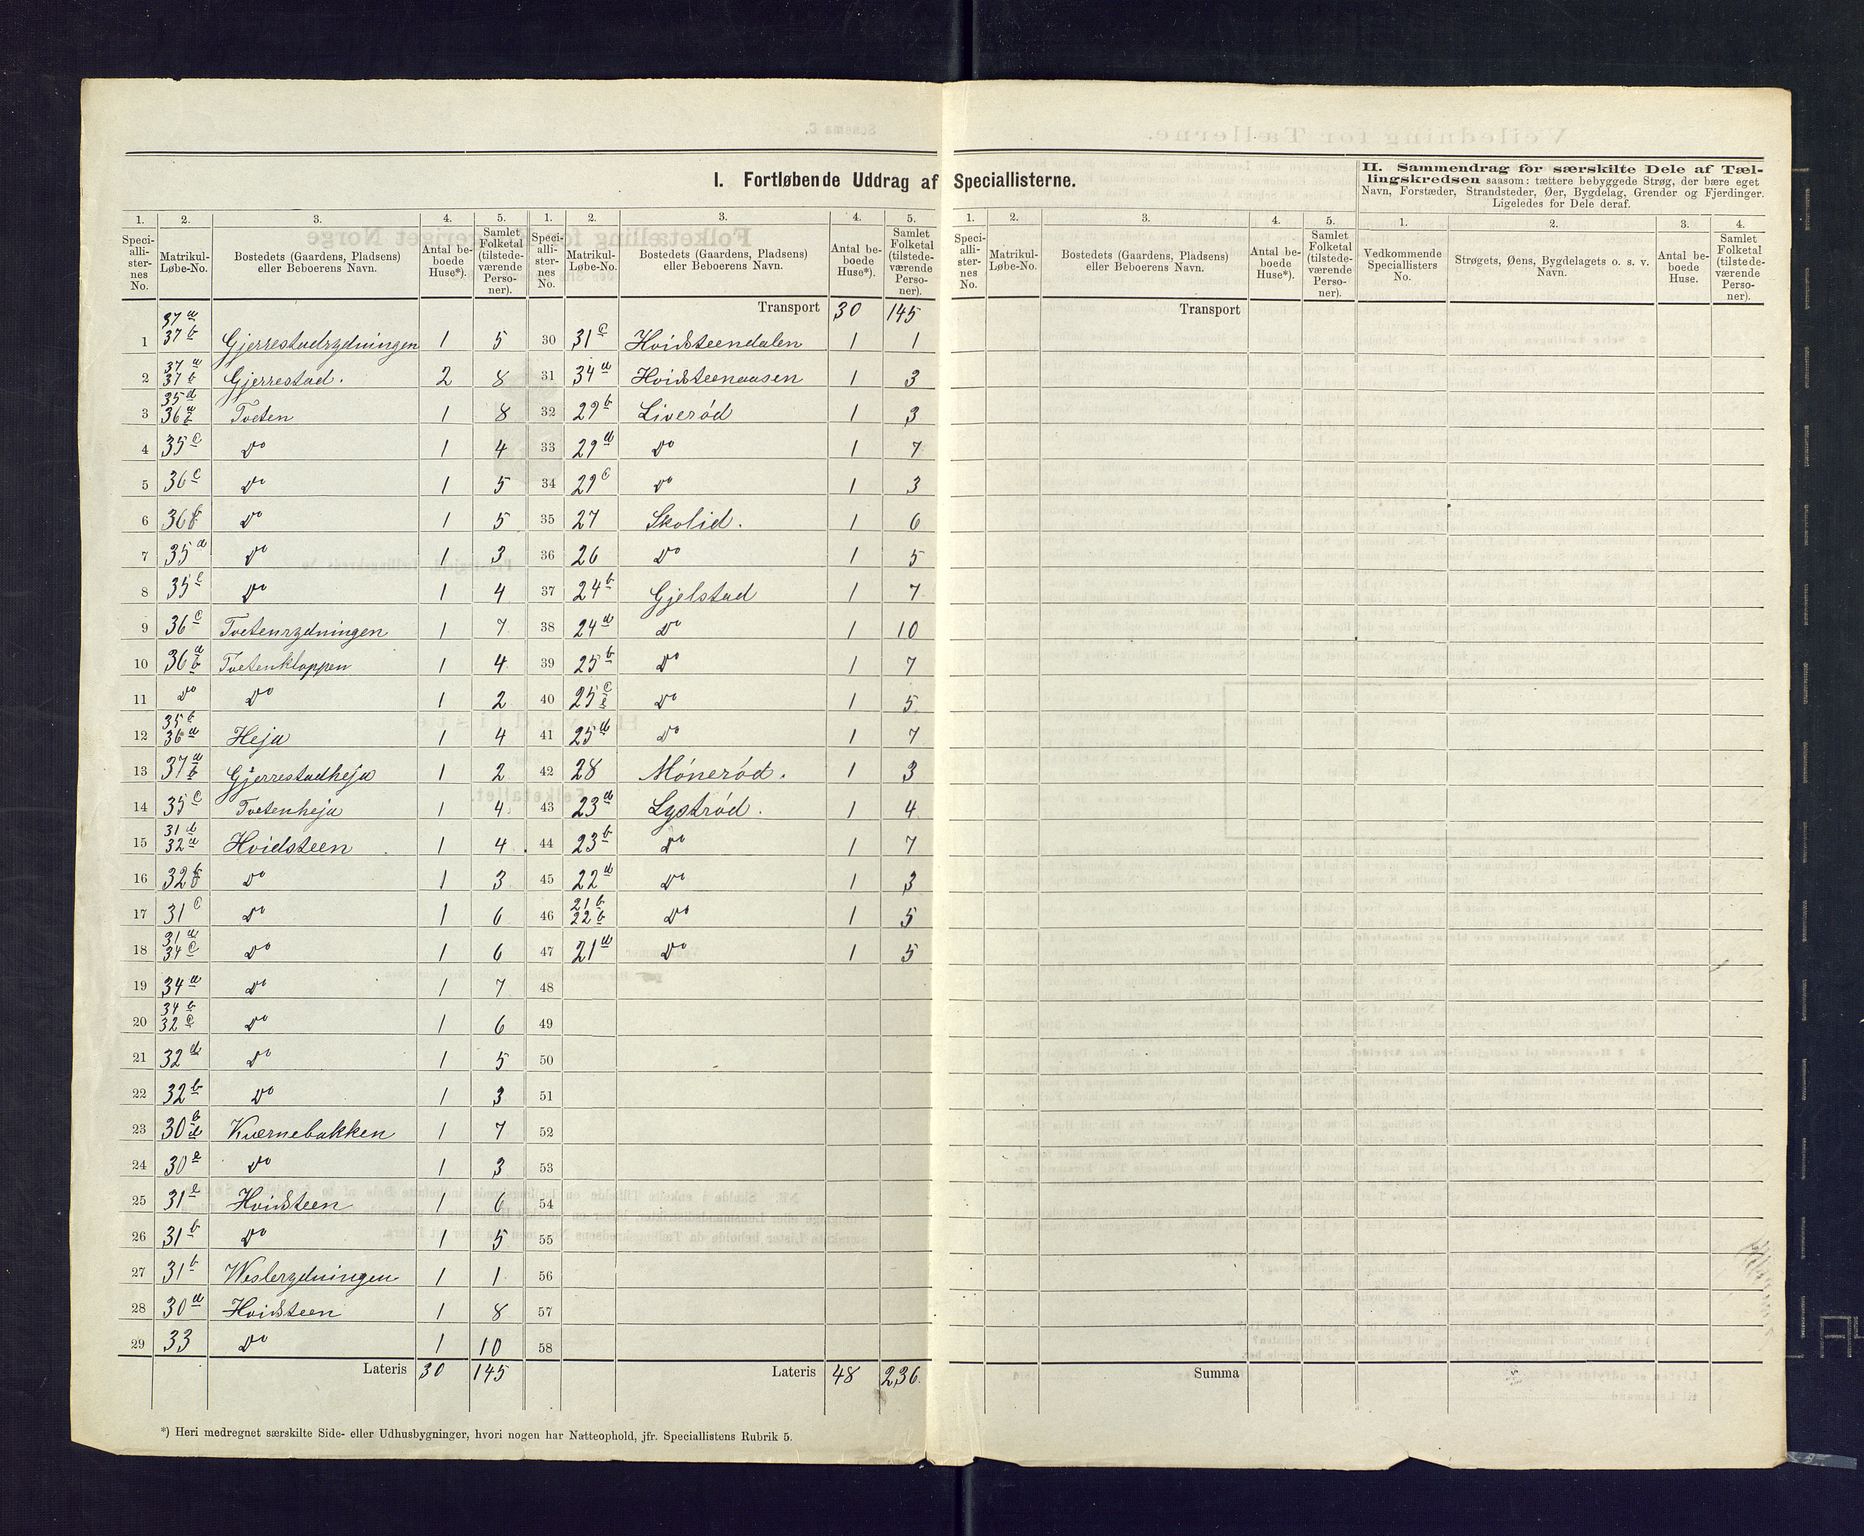 I. Fortløbende Uddrag af Speciallisterne.
II. Sammendrag for særskilte Dele af Tæl-
lingskredsen saasom: tættere bebyggede Strøg, der bære eget
Navn, Forstæder, Strandsteder, Øer, Bygdelag, Grender og Fjerdinger.
Ligeledes for Dele deraf.
1. 2. 3. 4. 5. 1. 2. 3. 4. 5. 1. 2. 3. 4. 5. 1. 2. 3. 4.
Speciallisternes No. Matrikul-Løbe-No. Bostedets (Gaardens, Pladsens) eller Beboerens Navn. Antal beboede Huse*). Samlet Folketal (tilstedeværende Personer).
Speciallisternes No. Matrikul-Løbe-No. Bostedets (Gaardens, Pladsens) eller Beboerens Navn. Antal beboede Huse*). Samlet Folketal (tilstedeværende Personer).
Speciallisternes No. Matrikul-Løbe-No. Bostedets (Gaardens, Pladsens) eller Beboerens Navn. Antal beboede Huse*). Samlet Folketal (tilstedeværende Personer).
Vedkommende Speciallisters No. Strøgets, Øens, Bygdelagets o. s. v. Navn. Antal beboede Huse. Samlet Folketal (tilstedeværende Personer).
1 37a 37b Gjerrestadrydningen 1 5
2 37a 37b Gjerrestad. 2 8
3 35d 36a b Tveten 1 8
4 35c Do 1 4
5 36c Do 1 5
6 36b Do 1 5
7 35a Do 1 3
8 35c Do 1 4
9 36c Tvetenrydningen 1 7
10 36a b Tvetenkloppen 1 4
11 Do Do 1 2
12 35b 36a Heja 1 4
13 37a b Gjerrestadheja 1 2
14 35c Tvetenheja 1 4
15 31d 32a Hvidsteen 1 4
16 32b Do 1 3
17 31c Do 1 6
18 31a 34c Do 1 6
19 34a Do 1 7
20 34b 32c Do 1 6
21 32d Do 1 5
22 32b Do 1 3
23 30b d Kværnebakken 1 7
24 30e Do 1 3
25 31e Hvidsteen 1 6
26 31b Do 1 5
27 31b Weslerydningen 1 1
28 30a Hvidsteen 1 8
29 33 Do 1 10
Lateris 30 145
Transport 30 145
30 31c Hvidsteendalen 1 1
31 34a Hvidsteenaasen 1 3
32 29b Liverød 1 3
33 29a Do 1 7
34 29c Do 1 3
35 27 Skolid. 1 6
36 26 Do 1 5
37 24b Gjelstad 1 7
38 24a Do 1 10
39 25b Do 1 7
40 25c e Do 1 5
41 25a Do 1 7
42 28 Mønerød. 1 3
43 23a Lystrød. 1 4
44 23b Do 1 7
45 22a Do 1 3
46 21b 22b Do 1 5
47 21a Do 1 5
48
49
50
51
52
53
54
55
56
57
58
Lateris 48 236.
Transport
Summa
*) Heri medregnet særskilte Side- eller Udhusbygninger, hvori nogen har Natteophold, jfr. Speciallistens Rubrik 5.